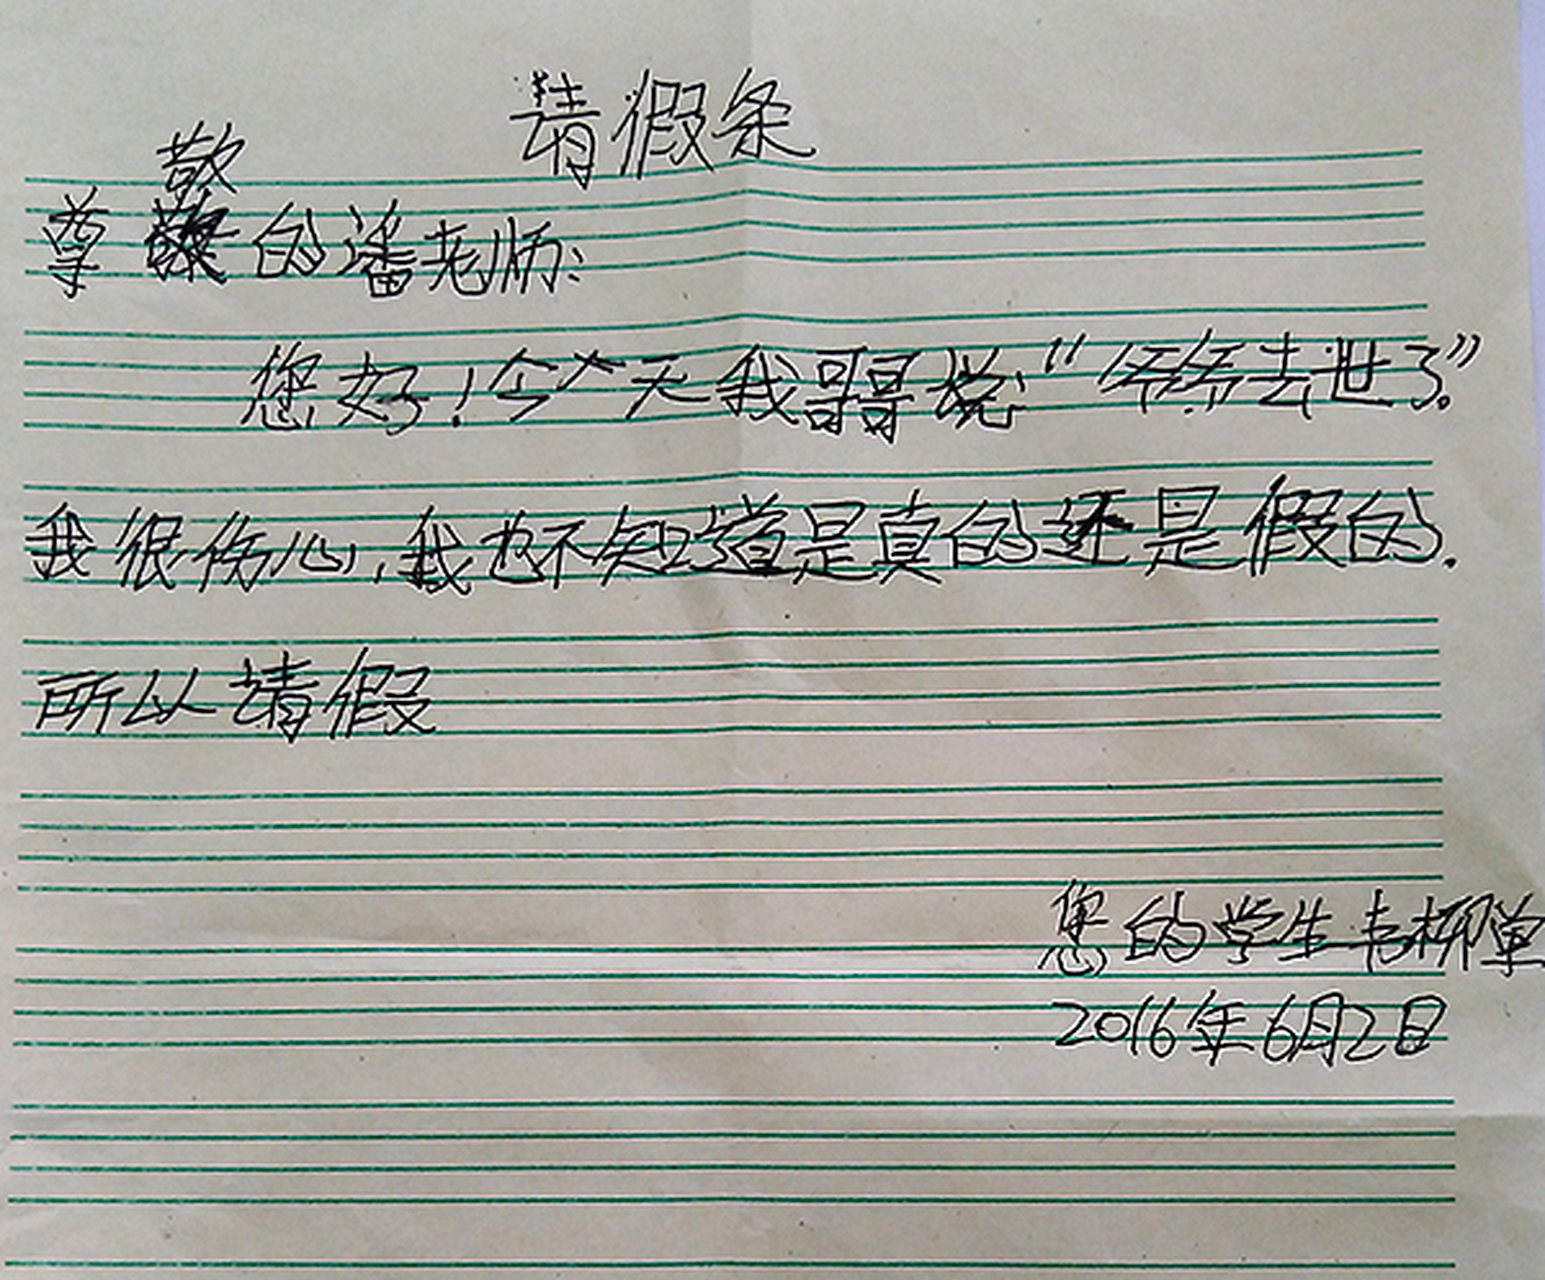 请假条
尊敬的潘老师:
您好!今天我哥哥说:“爷爷去世了。”
我很伤心,我也不知道是真的还是假的.
所以请假
您的学生韦柳单
2016年6月2日